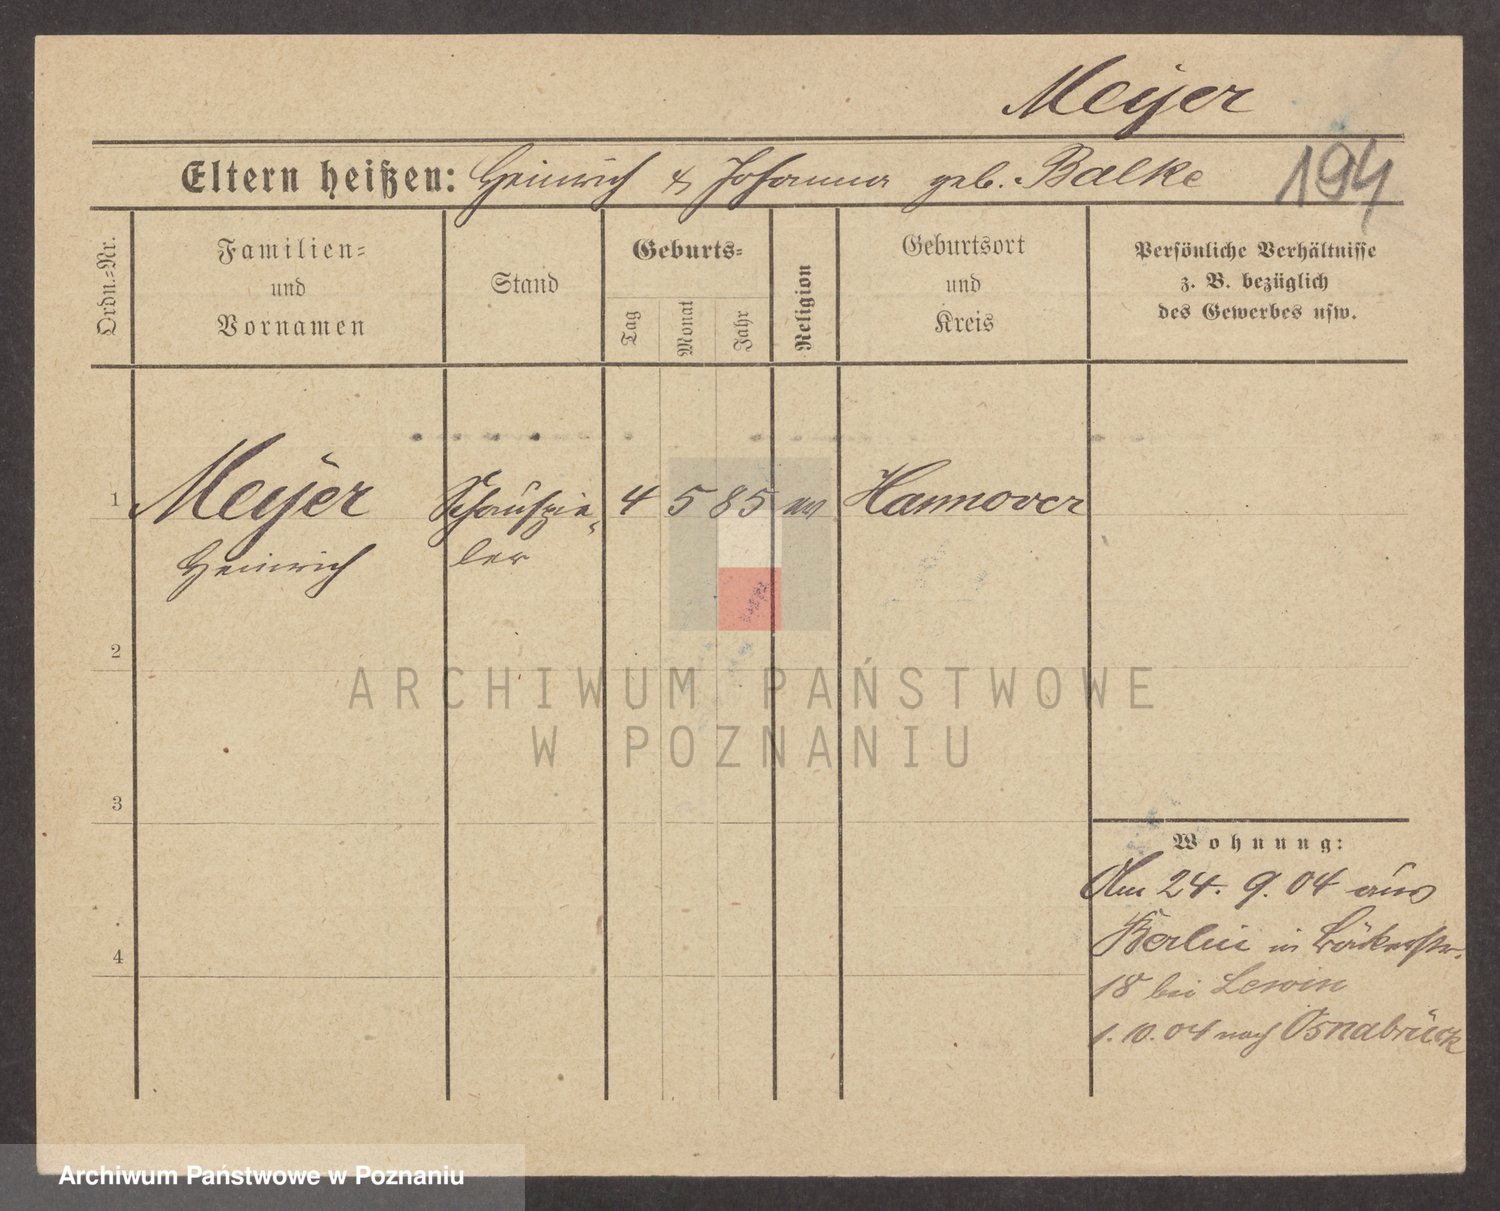 Meÿer
194
Eltern heißen: Heinrich & Johanna geb. Balke
Ordn.=Nr.
Familien=
und
Vornamen
Stand
Geburts=
Tag
Monat
Jahr
Religion
Geburtsort
und
Kreis
Persönliche Verhältnisse
z. B. bezüglich
des Gewerbes usw.
1
Meÿer
Heinrich
Schauspie-
ler
4 5 85
Hannover
2
3
4
Wohnung:
Am 24. 9. 04 aus
Berlin in Bäckerstr.
18 bei Lewin
1. 10. 04 nach Osnabrück
ARCHIWUM PAŃSTWOWE
W POZNANIU
Archiwum Państwowe w Poznaniu